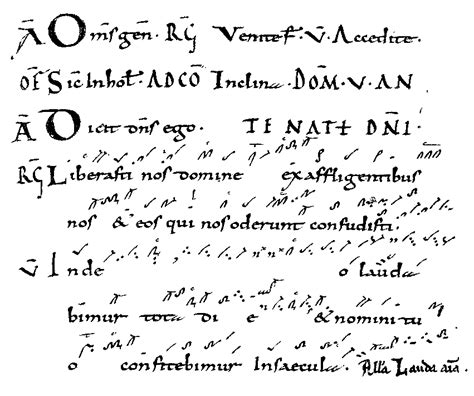 Ā Om̄s gen̄. R̄G Venite f̄. V̄. Accedite.
OF̄ Sic̄ In hoł. AD CŌ Inclina. DOM̄. V. AN
Ā Dicit dn̄s ego. TE NAT† DN̄I.
R̄G Liberasti nos domine ex affligentibus
nos & eos qui nos oderunt confudisti.
V̄ In de o lauda
bimur tota di e & nomini tu
o confitebimur In saecula. All̄a Lauda aīa.